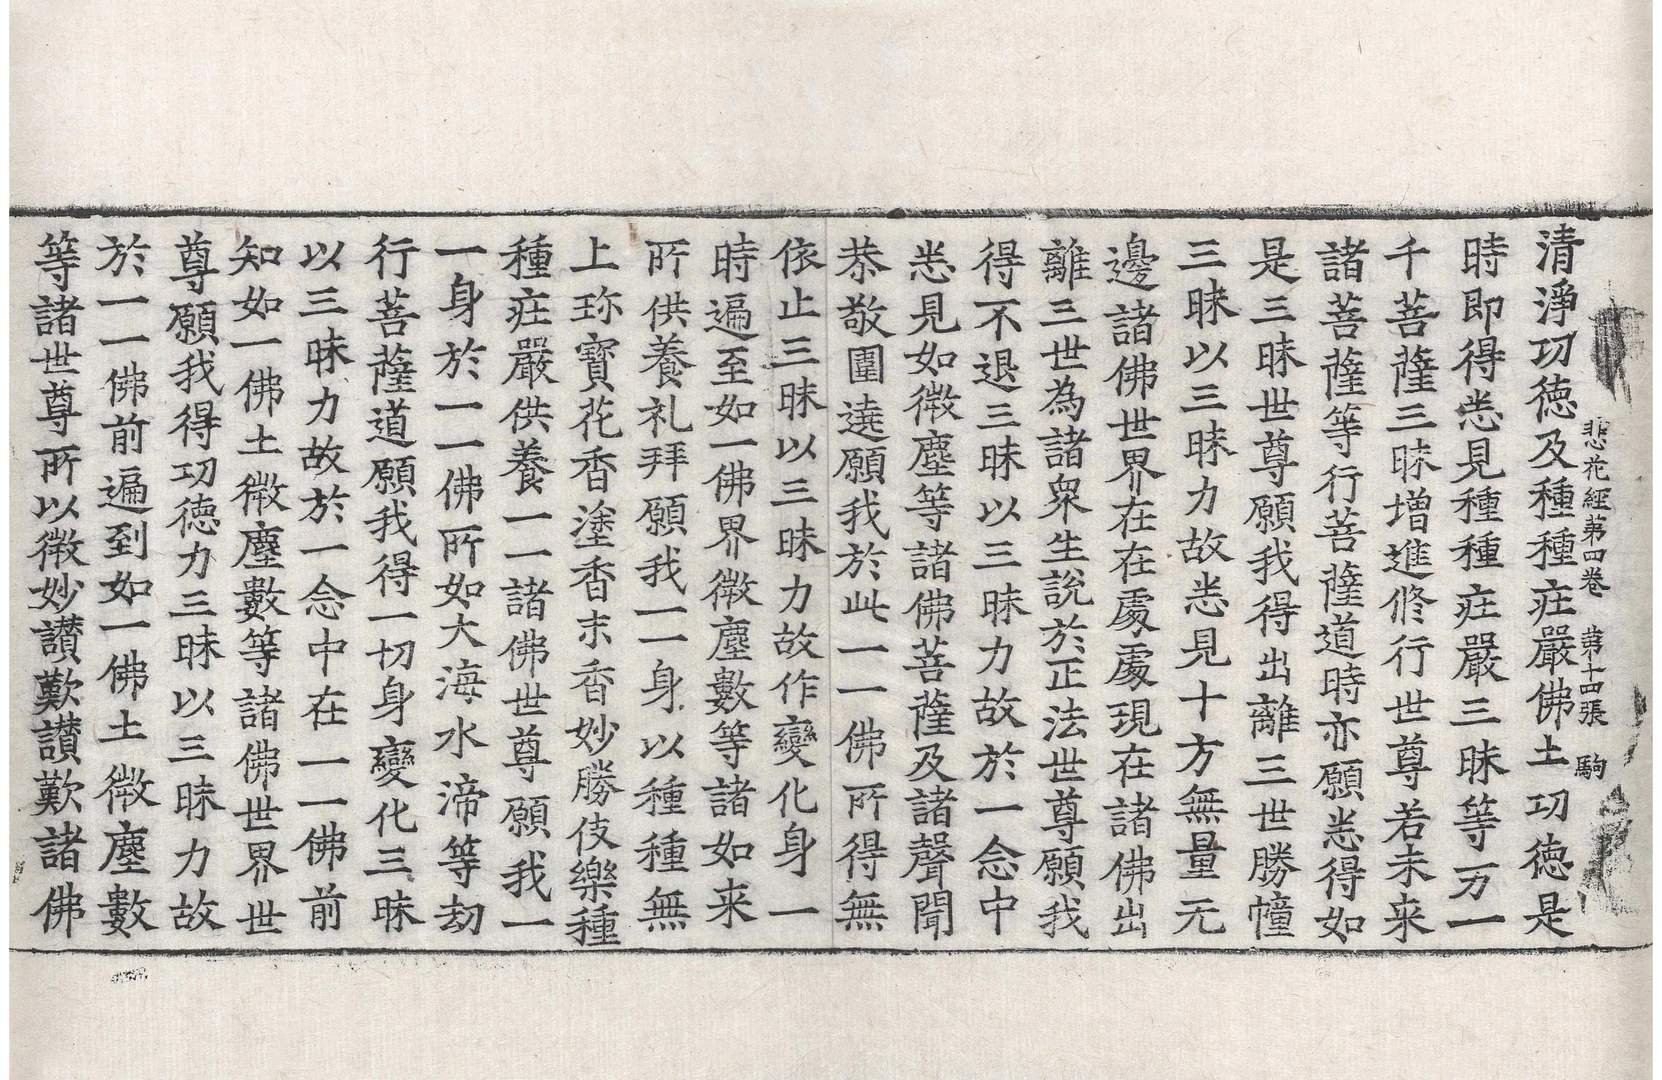 悲花經第四卷　第十四張　駒
清淨功德及種種疘嚴佛土功德是
時即得悉見種種疘嚴三昧等万一
千菩薩三昧增進修行世尊若未来
諸菩薩等行菩薩道時亦願悉得如
是三昧世尊願我得出離三世勝幢
三昧以三昧力故悉見十方無量无
邊諸佛世界在在處處現在諸佛出
離三世為諸衆生說於正法世尊願我
得不退三昧以三昧力故於一念中
悉見如微塵等諸佛菩薩及諸聲聞
恭敬圍遶願我於此一一佛所得無
依止三昧以三昧力故作變化身一
時遍至如一佛界微塵數等諸如来
所供養礼拜願我一一身以種種無
上珎寶花香塗香末香妙勝伎樂種
種疘嚴供養一一諸佛世尊願我一
一身於一一佛所如大海水渧等劫
行菩薩道願我得一切身變化三昧
以三昧力故於一念中在一一佛前
知如一佛土微塵數等諸佛世界世
尊願我得功德力三昧以三昧力故
於一一佛前遍到如一佛土微塵數
等諸世尊所以微妙讃歎讃歎諸佛